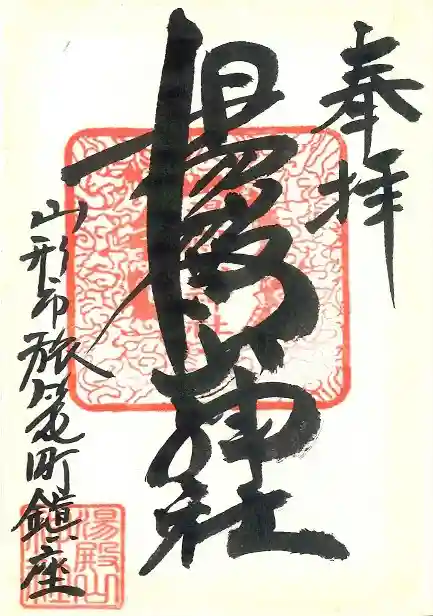 奉拝
湯殿山神社
山形市旅篭町鎮座
湯殿山神社